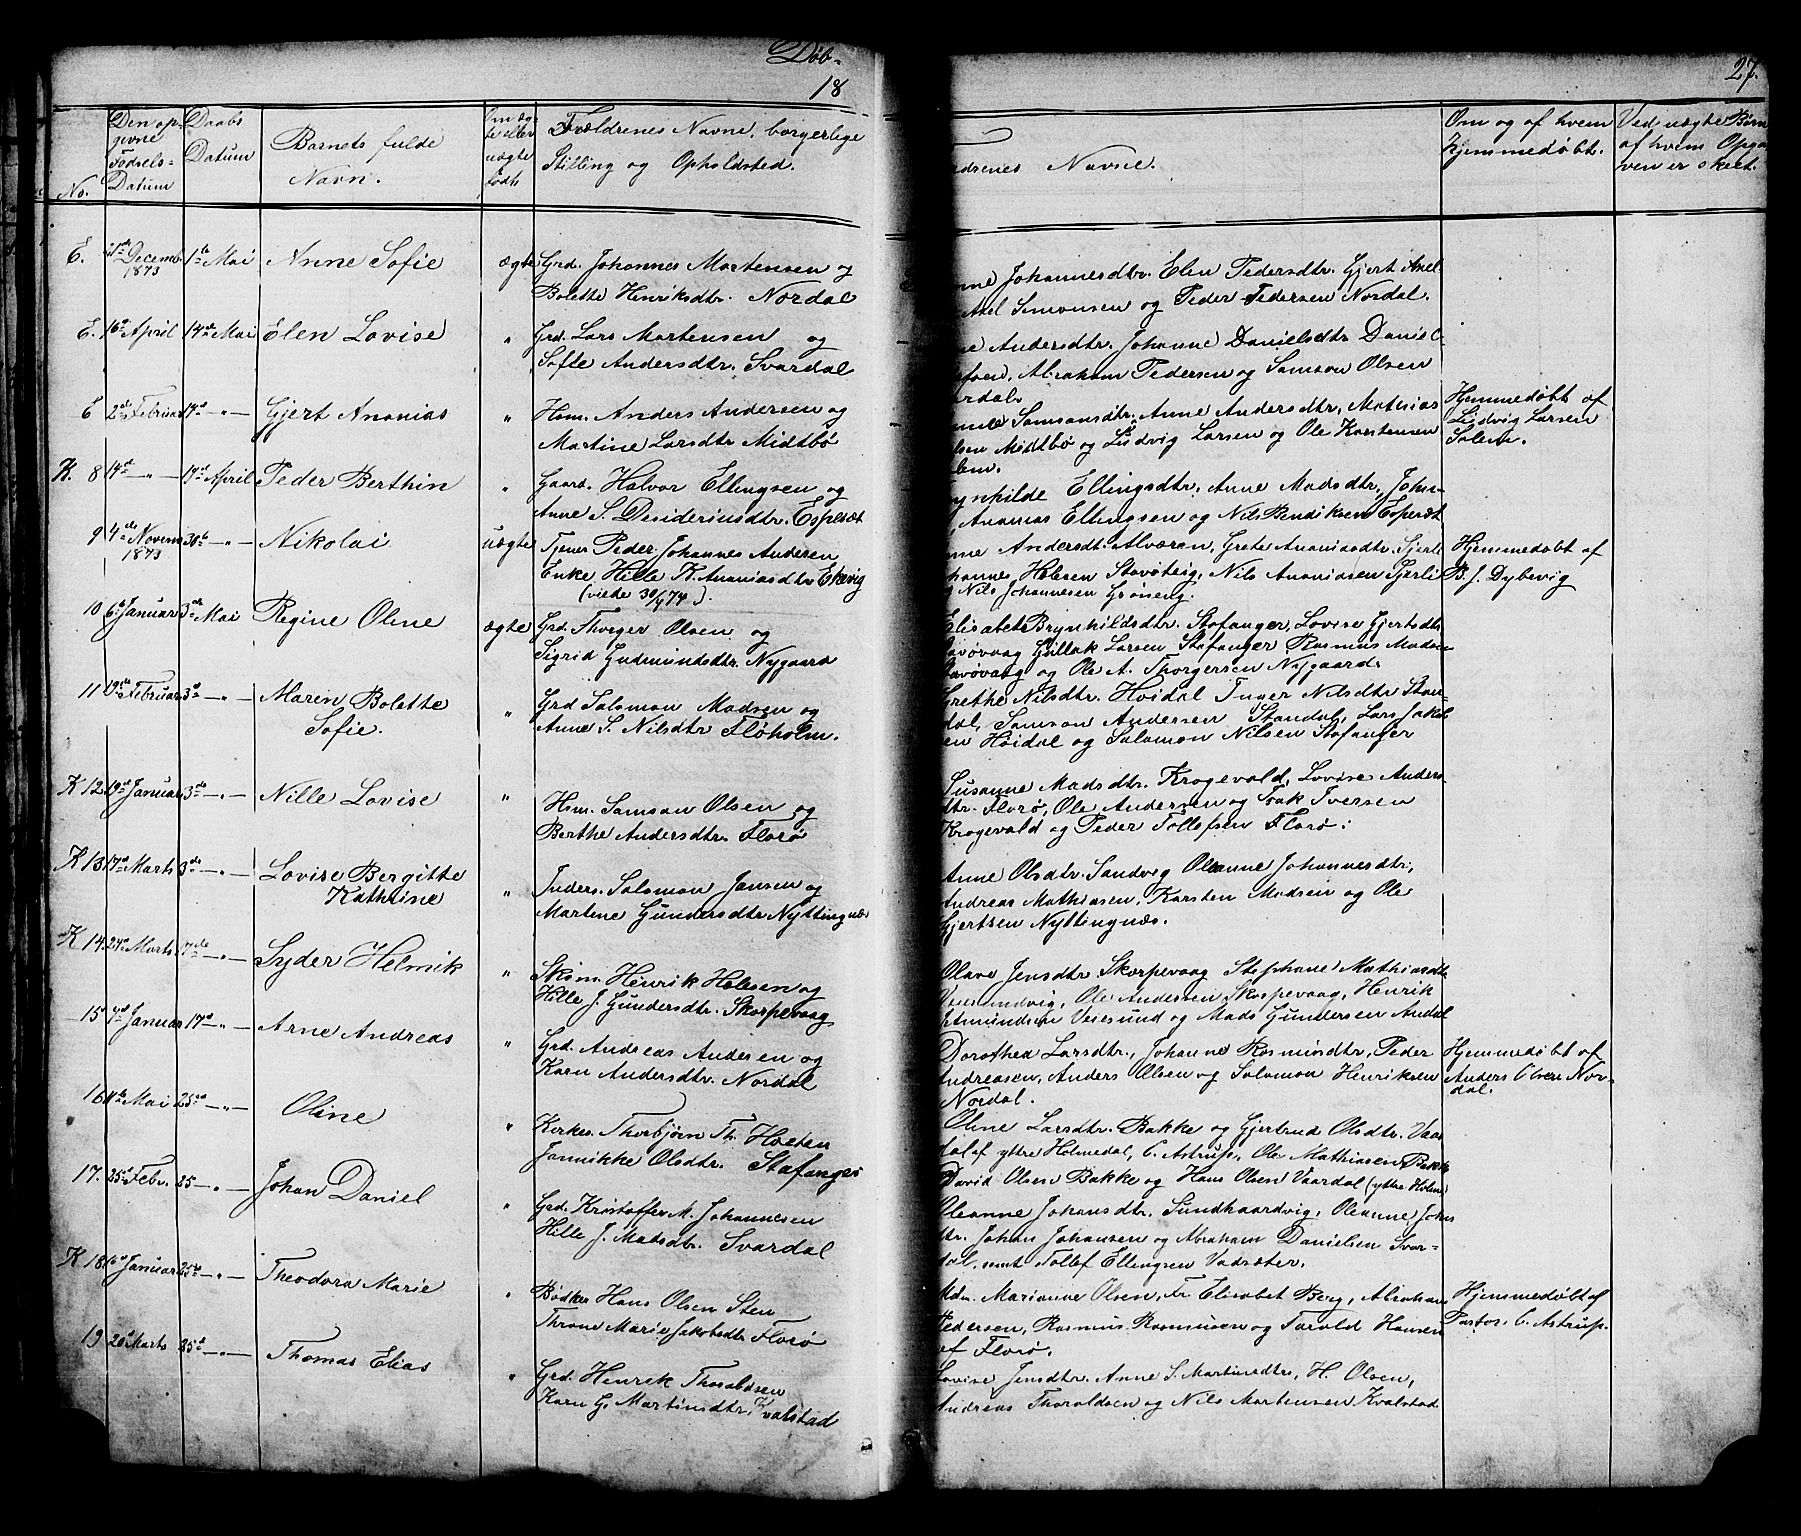 Døb-
18
27.
No.
Den op-
givne
Fødsels-
Datum
Daabs
Datum
Barnets fulde
Navn.
Om æg-
te eller
uægte
født.
Forældrenes Navne, borgerlige
Stilling og Opholdsted.
Navne.
Om og af hvem
hjemmedøbt.
Ved uægte Børn
af hvem Opga-
ven er skeet.
E. 1ste Decemb. 1873 1ste Mai Anne Sofie ægte Grd. Johannes Martensen og
Bolette Henriksdtr. Nordal
Johannesdtr. Elen Pedersdtr. Gjert Axel-
Axel Simonsen og Peder Pedersen Nordal.
E. 16de April 14de Mai Elen Lovise " Grd. Lars Martensen og
Sofie Andersdtr. Svardal
Andersdtr. Johanne Danielsdtr Daniel
Abraham Pedersen og Samson Olsen
E 2den Februar 14de -"- Gjert Ananias " Hsm. Anders Andersen og
Martine Larsdtr Midtbø
Samsonsdtr. Anne Andersdtr, Mathias
Midtbø og Ludvig Larsen og Ole Karstensen
Hjemmedøbt af
Ludvig Larsen
Solem.
K. 8 14de -"- 19de April Peder Berthin " Gaard. Halvor Ellingsen og
Anne S. Desideriusdtr. Espesæt
Ellingsdtr. Anne Madsdtr, Johan-
Ananias Ellingsen og Nils Bendiksen Espesæt
9 4de Novem. 1873 30te -"- Nikolai uægte Tjener Peder Johannes Andersen
Enke Hille K. Ananiasdtr Ekevig
(viede 30/4 74).
Andersdt. Alværen, Grete Ananiasdtr. Fjerli
Helesen Stavøteig, Nils Ananiasen Fjerli
og Nils Johannesen Grøneng.
Hjemmedøbt af
B. J. Dybevig
10 6te Januar 3de Mai Regine Oline ægte Grd. Thorger Olsen og
Sigrid Gudmundsdtr. Nygaard
Elisabet Brynhildsdtr. Stafanger, Lovise Gjertsdtr
Gullak Larsen Stafanger Rasmus Madsen
og Ole A. Thorgersen Nygaard.
11 19de Februar 3de -"- Maren Bolette
Sofie.
" Grd Salomon Madsen og
Anne S. Nilsdtr Fløholm.
Grethe Nilsdtr. Høidal Inger Nilsdtr Stan-
dal, Samson Andersen Standal, Lars Jakob-
sen Høidal og Salomon Nilsen Stafanger
K 12. 19de Januar 3de -"- Nille Lovise " Hsm. Samson Olsen og
Berthe Andersdtr. Florø
Susanne Madsdtr. Krogevald, Lovise Anders-
dtr. Florø, Ole Andersen og Isak Iversen
Krogevald og Peder Tollefsen Florø.
K 13 17de Marts 3de -"- Lovise Bergitte
Kathrine
" Inders. Salomon Jansen og
Martine Gundersdtr Nyttingnæs
Anne Olsdtr. Sandvig Oleanne Johannesdtr,
Andreas Mathiasen, Karsten Madsen og Ole
Gjertsen Nyttingnæs.
K 14. 24de Marts 17de -"- Syder Helmik " Skøm. Henrik Helesen og
Hille J. Gundersdtr. Skorpevaag
Olave Jensdtr. Skorpevaag Stephane Mathiasdtr
Ole Andersen Skorpevaag, Henrik
Veiesund og Mads Gundersen Andal
15 4de Januar 17de -"- Arne Andreas " Grd. Andreas Andersen og
Karn Andersdtr. Nordal
Dorothea Larsdtr., Johanne Rasmusdtr, Peder
Andreasen, Anders Olsen og Salomon Henriksen
Nordal.
Hjemmedøbt af
Anders Olsen Nor-
dal.
16 11te Mai 25de -"- Oline " Kirkes. Thorbjørn Th. Hvesten
Jannikke Olsdtr. Stafanger
Oline Larsdtr. Bakke og Gjertrud Olsdtr. Vaar-
dal af ytre Holmedal, C. Astrup, Ole Mathiasen Bakke
David Olsen Bakke og Hans Olsen Vaardal (ytre Holme
17. 25de Febr. 25 -"- Johan Daniel " Grd. Kristoffer M. Johannesen
Hille J. Madsdtr. Svardal
Oleanne Johansdtr. Sundhaardvig, Oleanne Johs
dtr. Johan Johansen og Abraham Danielsen Svar-
dal, samt Tollef Ellingsen Vadsæter.
K 18 6te Januar 25de -"- Theodora Marie " Bødker Hans Olsen Sten
Throne Marie Jakobsdtr Florø
Mdm. Marianne Olsen, Fr Elisabet Berg, Abraham
Pedersen, Rasmus Rasmusen og Tarald Hansen
af Florø.
Hjemmedøbt af
Pastor C. Astrup.
19 20de Marts 25de -"- Thomas Elias " Grd. Henrik Thoraldsen
Karn G. Martinsdtr, Kvalstad
Lovise Jensdtr. Anne S. Martinsdtr, H. Olsen,
Andreas Thoraldsen og Nils Martensen Kvalstad